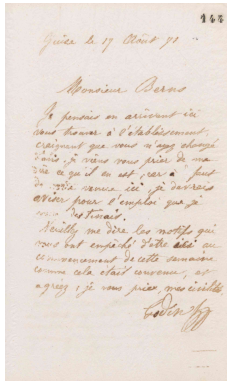 144
Guise le 17 Août 71
Monsieur Berus
Je pensais en arrivant ici
vous trouver à l'établissement,
craignant que vous n'ayez changé
d'avis, je viens vous prier de me
dire ce qu'il en est, car à faut
de votre venue ici, je devrais
aviser pour l'emploi que je
vous destinais.
Veuillez me dire les motifs qui
vous ont empêché d'être ici au
commencement de cette semaine
comme cela était convenu, et
agréez, je vous prie, mes civilités
Godin